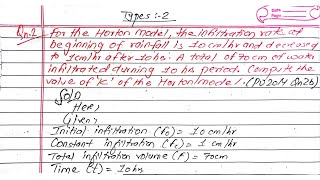 Types:-2
Date
Page
Qn.2 For the Horton Model, the infiltration rate at
beginning of rainfall is 10cm/hr and decreased
to 1cm/hr after 10hrs. A total of 70cm of water
infiltrated durning 10 hrs period. Compute the
value of 'K' of the Horton model. (PU2014 Qn2b)
Solⁿ
Here,
Given,
Initial infiltration (fo) = 10 cm/hr
Constant infiltration (fc) = 1 cm/hr
Total infiltration volume (F) = 70cm
Time (t) = 10hr